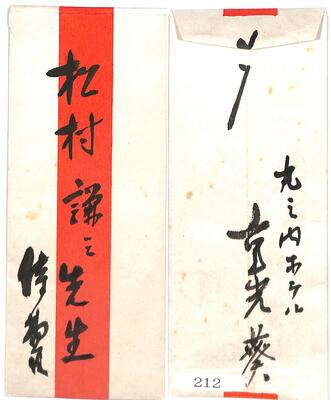 松村謙三先生
侍曹
〆
丸之内ホテル
212